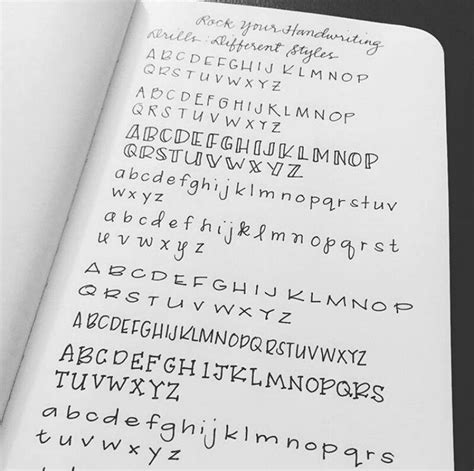 Rock Your Handwriting
Drills: Different Styles
ABCDEFGHIJKLMNOP
QRSTUVWXYZ
ABCDEFGHIJKLMNOP
QRSTUVWXYZ
ABCDEFGHIJKLMNOP
QRSTUVWXYZ
abcdefghijklmnopqrstuv
wxyz
abcdefghijklmnopqrst
uvwxyz
ABCDEFGHIJKLMNOP
QRSTUVWXYZ
ABCDEFGHIJKLMNOPQRSTUVWXYZ
ABCDEFGHIJKLMNOPQRS
TUVWXYZ
abcdefghijklmnopqrs
tuvwxyz